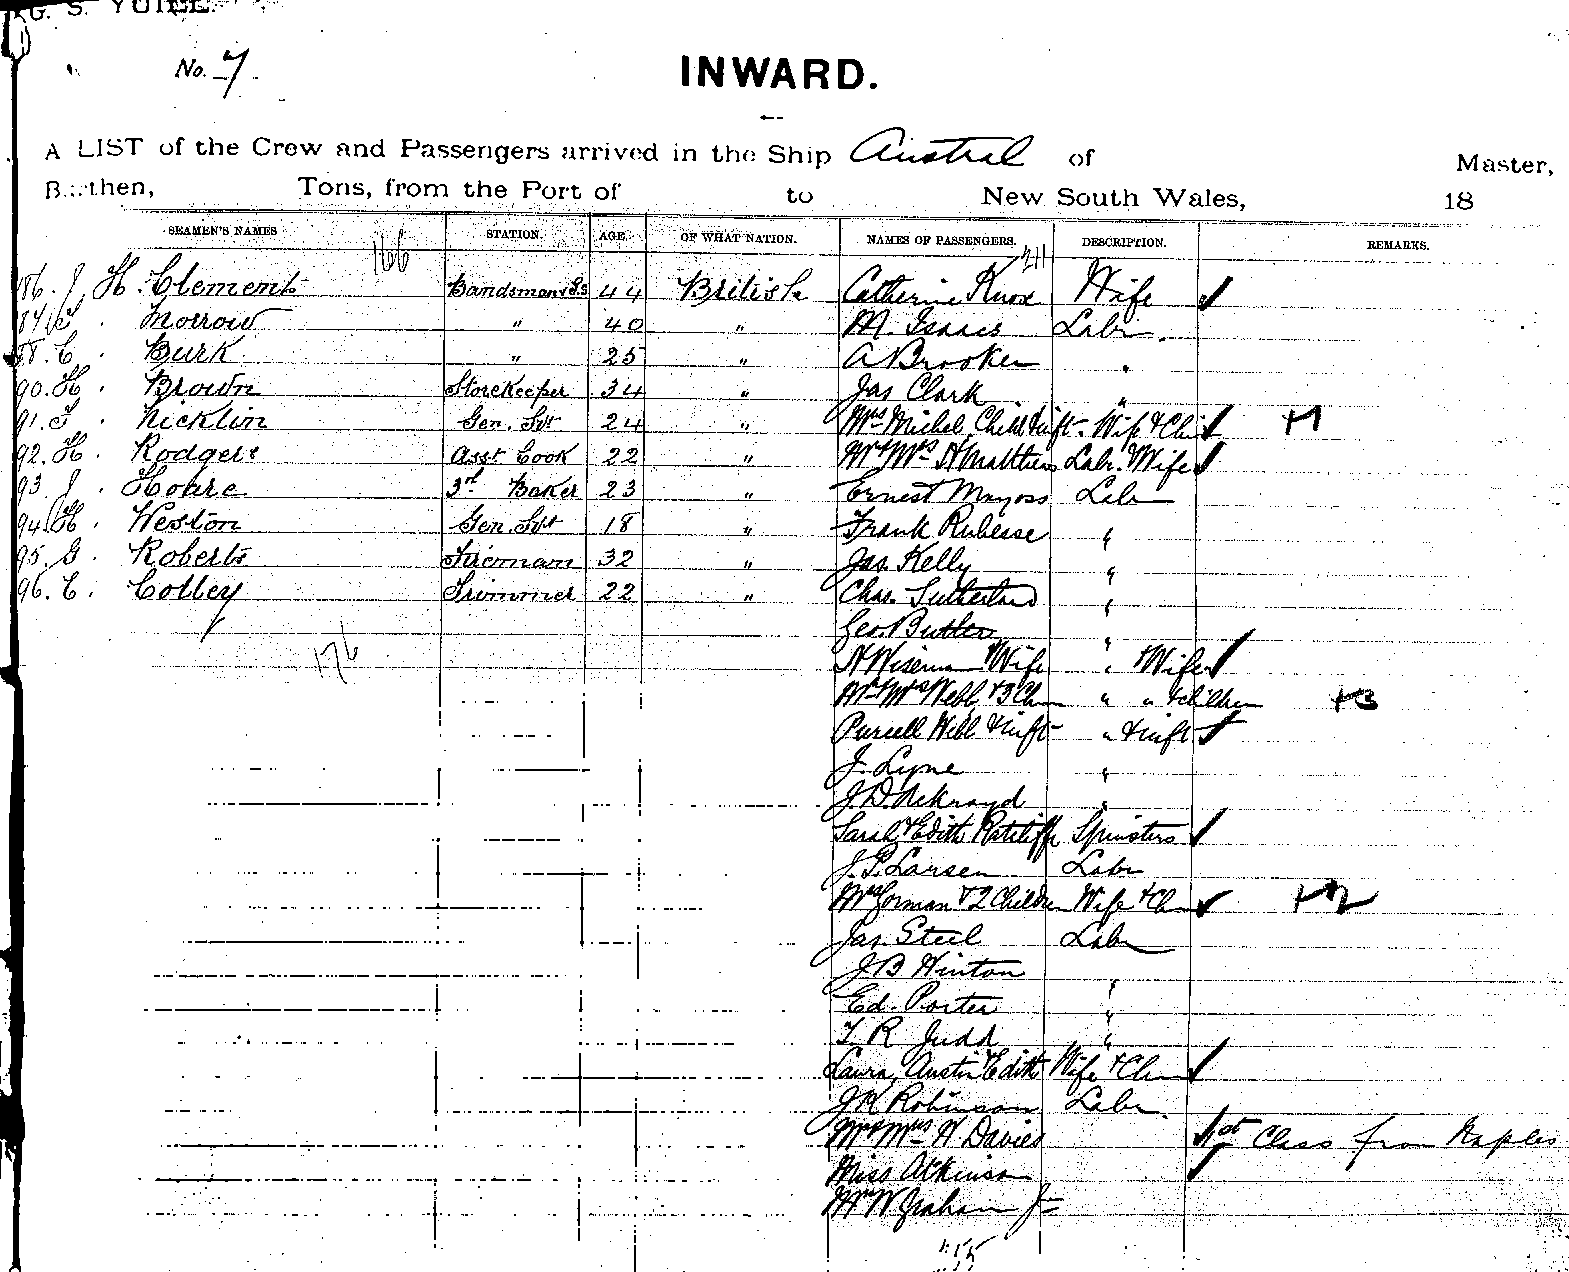 G. S. YUILL.
No. 7.
INWARD.
A LIST of the Crew and Passengers arrived in the Ship Austral of Master,
Burthen, Tons, from the Port of to New South Wales, 18
SEAMEN'S NAMES STATION. AGE. OF WHAT NATION. NAMES OF PASSENGERS. DESCRIPTION. REMARKS.
166 211
86. J. H. Clement Bandsman 44 British Catherine Knox Wife ✓
Morrow " 40 " M. Isaacs Labr.
88. C. Burk " 25 " A Brooker "
90. H. Brown Storekeeper 34 " Jas Clark "
91. Nicklin Gen. Svt 24 " Mrs Michel, Child & inft. Wife & Chi ✓ +1
92. H. Rodgers Asst Cook 22 " Mr & Mrs H Matthews Labr. & Wife ✓
93 J. Hoare 3rd Baker 23 " Ernest Labr
94. H. Weston Gen. Svt 18 " Frank "
95. G. Roberts Fireman 32 " Jas. Kelly "
96. C. Colley Trimmer 22 " Chas. Sutherland "
Geo. Butler "
176 & Wife " & Wife ✓
Mr & Mrs Webb & 3 Chn " " & children +3
Purcell Webb & inft " & inft ✓
J. Lyne "
J. D. Ackroyd "
Sarah & Edith Ratcliffe Spinsters ✓
Larsen Labr
Mrs Gorman & 2 Children Wife & Chn ✓ +2
Jas. Steel Labr
J B Hinton "
Ed. Porter "
T. R Judd "
Laura, Austin & Edith Wife & Chn ✓
Robinson Labr
Mr & Mrs Davies 1st Class from Naples
Miss Atkinson ✓
Mr W Graham Jr
55